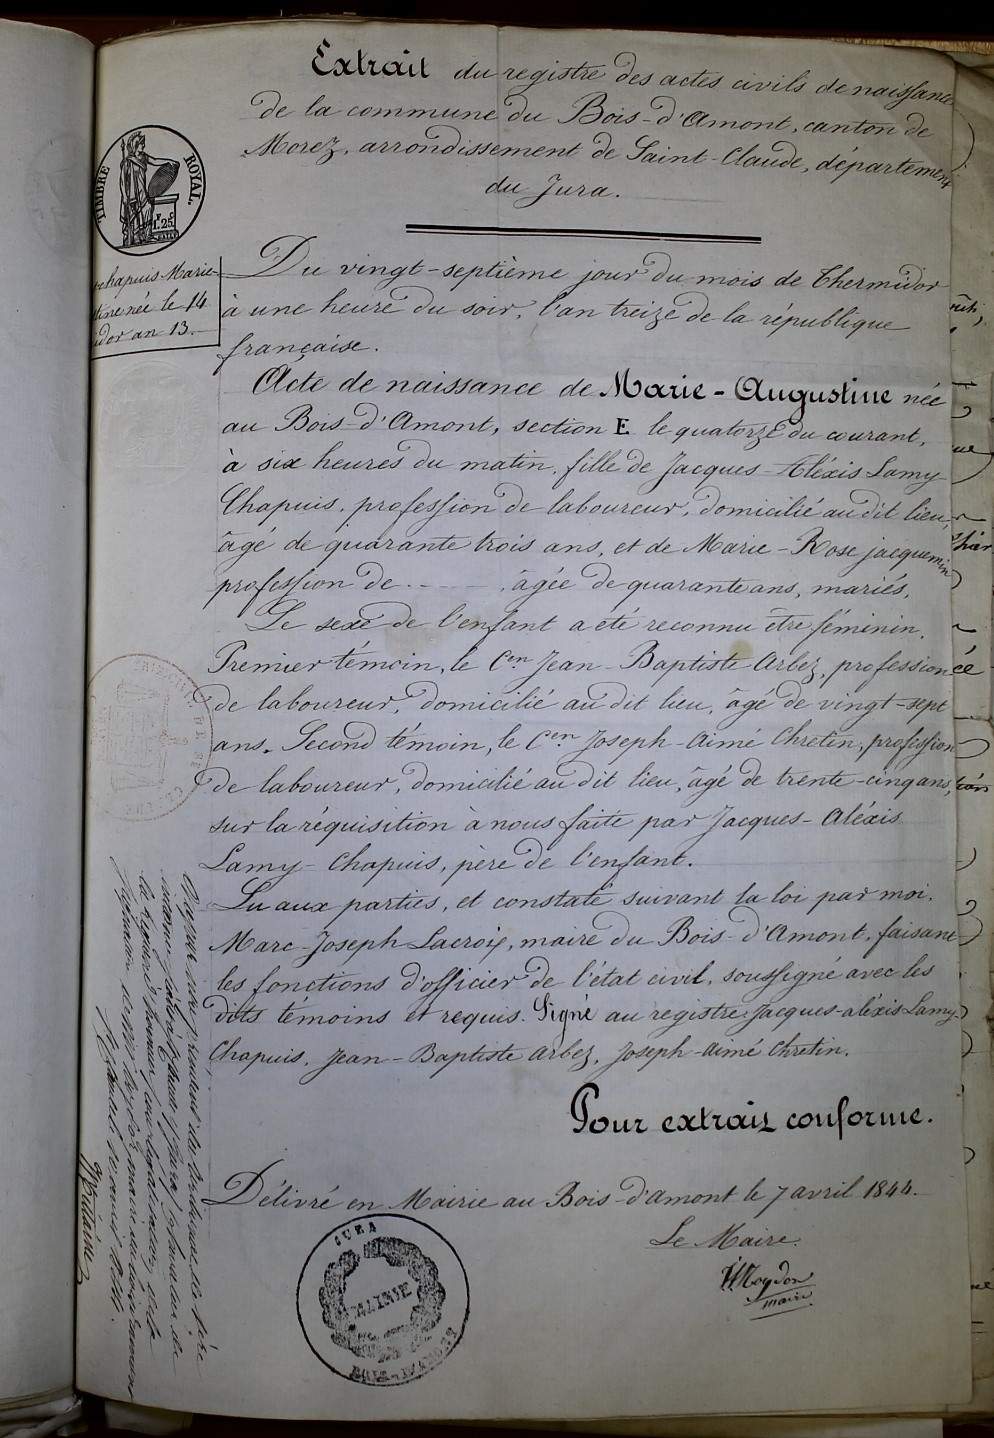 Extrait du registre des actes civils de naissance
de la commune du Bois-d'Amont, canton de
Morez, arrondissement de Saint-Claude, département
du Jura.
TIMBRE ROYAL
1.25
chapuis Marie-
tine née le 14
idor an 13.
Du vingt-septième jour du mois de Thermidor
à une heure du soir, l'an treize de la république
française.
Acte de naissance de Marie-Augustine née
au Bois-d'Amont, section E le quatorze du courant,
à six heures du matin, fille de Jacques-Aléxis Lamy
Chapuis, profession de laboureur, domicilié au dit lieu,
âgé de quarante trois ans, et de Marie-Rose jacquemin
profession de - - - - , âgée de quarante ans, mariés.
Le sexe de l'enfant a été reconnu être féminin.
Premier témoin, le Cen Jean-Baptiste Arbez, profession
de laboureur, domicilié au dit lieu, âgé de vingt-sept
ans. Second témoin, le Cen Joseph-Aimé Chretin, profession
de laboureur, domicilié au dit lieu, âgé de trente-cinq ans,
sur la réquisition à nous faite par Jacques-Aléxis
Lamy-Chapuis, père de l'enfant.
Lu aux parties, et constaté suivant la loi par moi.
Marc-Joseph Lacroix, maire du Bois-d'Amont, faisant
les fonctions d'officier de l'état civil, soussigné avec les
dits témoins et requis. Signé au registre Jacques-aléxis Lamy-
Chapuis, Jean-Baptiste Arbez, Joseph-aimé Chretin.
Pour extrait conforme.
Délivré en Mairie au Bois-d'amont le 7 avril 1844.
Le Maire.
maire
JURA
MAIRIE
BOIS-D'AMONT